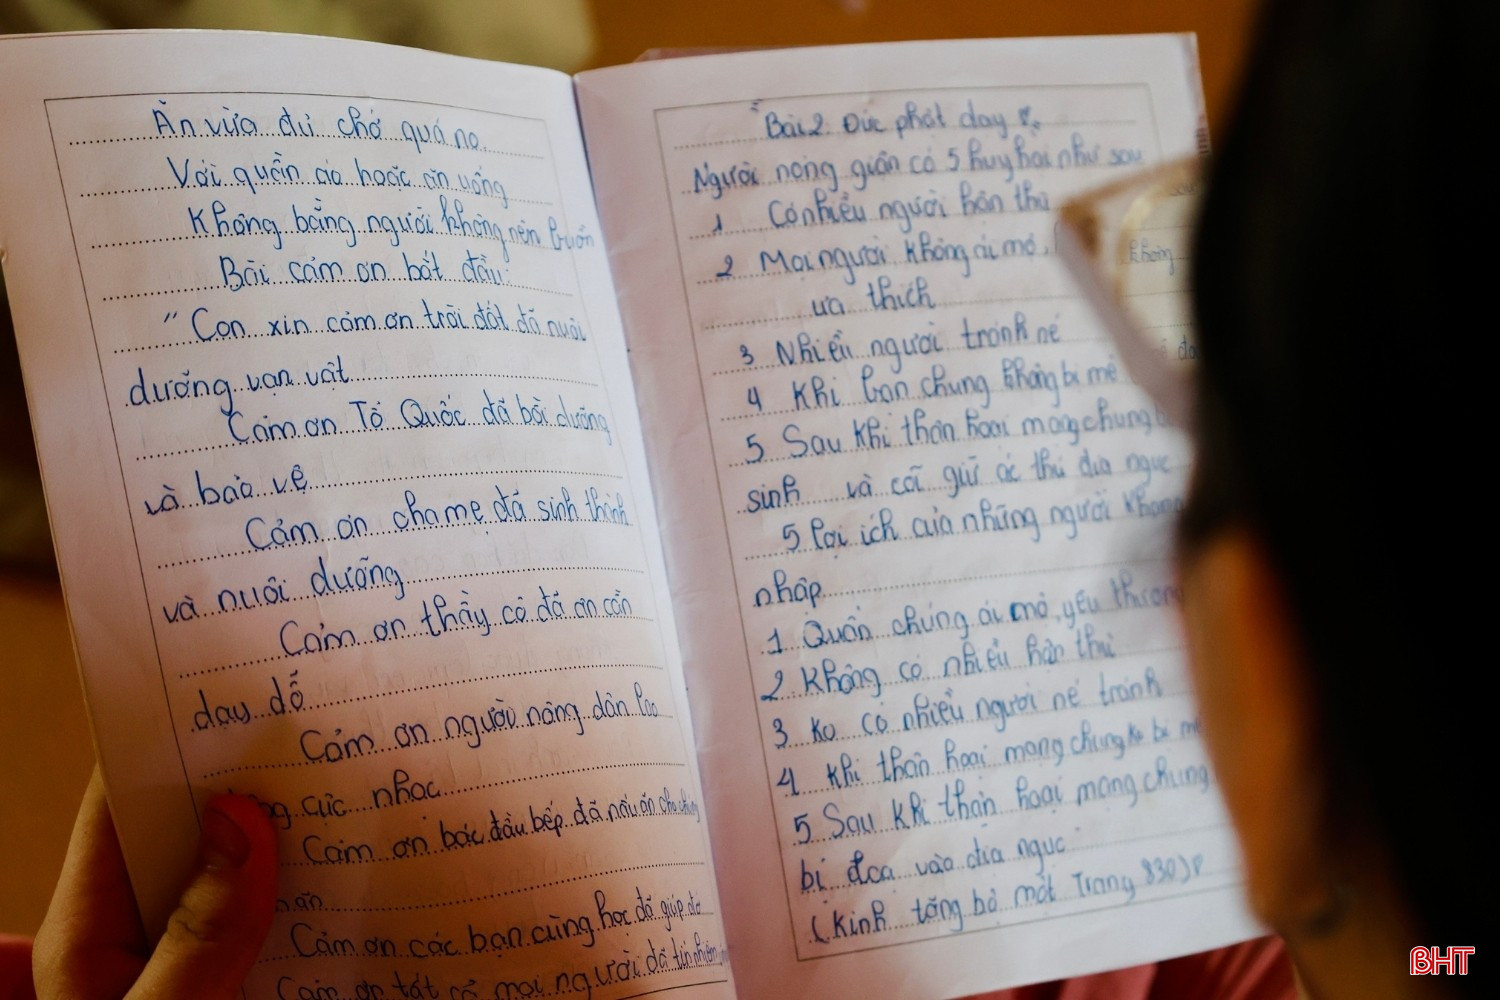 Ăn vừa đủ chớ quá no.
Với quần áo hoặc ăn uống
Không bằng người không nên buồn
Bài cảm ơn bắt đầu:
" Con xin cảm ơn trái đất đã nuôi
dưỡng vạn vật
Cảm ơn Tổ Quốc đã bồi dưỡng
và bảo vệ
Cảm ơn cha mẹ đã sinh thành
và nuôi dưỡng
Cảm ơn thầy cô đã ân cần
dạy dỗ
Cảm ơn người nông dân lao
cực nhọc
Cảm ơn bác đầu bếp đã nấu ăn cho chúng
Cảm ơn các bạn cùng học đã giúp đỡ
Cảm ơn tất cả mọi người đã tín nhiệm
Bài 2: Đức phật dạy
Người nóng giận có 5 huy hại như sau
1 Có nhiều người hận thù
2 Mọi người không ái mộ, không
ưa thích
3 Nhiều người tránh né
4 Khi lâm chung không bị mê
5 Sau khi thân hoại mạng chung
sinh và cõi giữ ác thú địa ngục
5 lợi ích của những người không
nhập
1 Quần chúng ái mộ, yêu thương
2 Không có nhiều hận thù
3 Ko có nhiều người né tránh
4 Khi thân hoại mạng chung ko bị mê
5 Sau khi thân hoại mạng chung
bị đọa vào địa ngục
(Kinh tăng bộ một Trang 830)
BHT